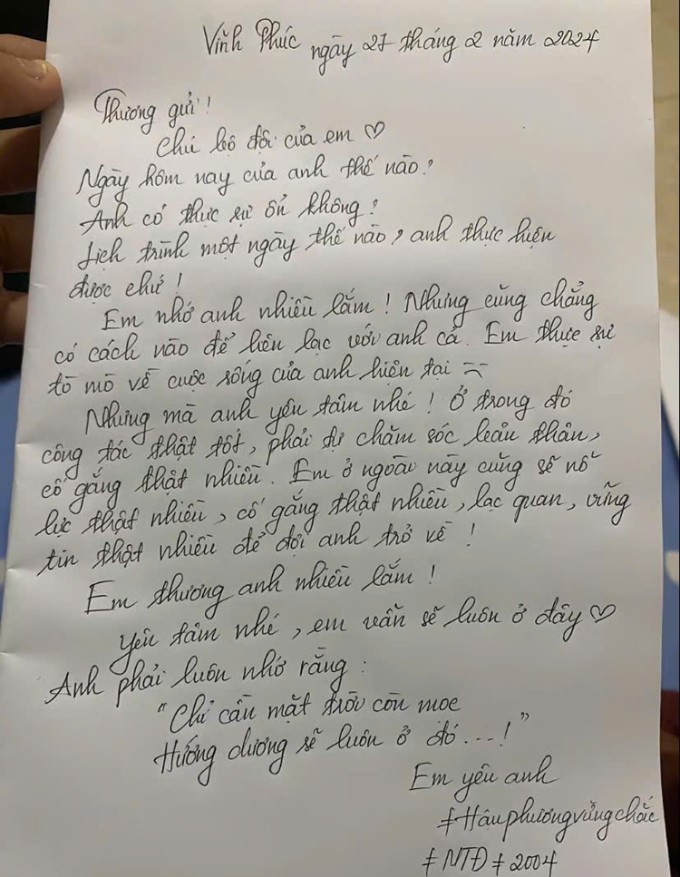 Vĩnh Phúc ngày 27 tháng 2 năm 2024
Thương gửi !
Chú bộ đội của em ♡
Ngày hôm nay của anh thế nào?
Anh có thực sự ổn không?
Lịch trình một ngày thế nào, anh thực hiện
được chứ !
Em nhớ anh nhiều lắm ! Nhưng cũng chẳng
có cách nào để liên lạc với anh cả. Em thực sự
tò mò về cuộc sống của anh hiện tại =
Nhưng mà anh yên tâm nhé ! Ở trong đó
công tác thật tốt, phải tự chăm sóc bản thân,
cố gắng thật nhiều. Em ở ngoài này cũng sẽ nỗ
lực thật nhiều, cố gắng thật nhiều, lạc quan, vững
tin thật nhiều để đợi anh trở về !
Em thương anh nhiều lắm !
Yên tâm nhé, em vẫn sẽ luôn ở đây ♡
Anh phải luôn nhớ rằng :
"Chỉ cần mặt trời còn mọc
Hướng dương sẽ luôn ở đó...!"
Em yêu anh
#Hậuphươngvửngchắc
#NTĐ#2004